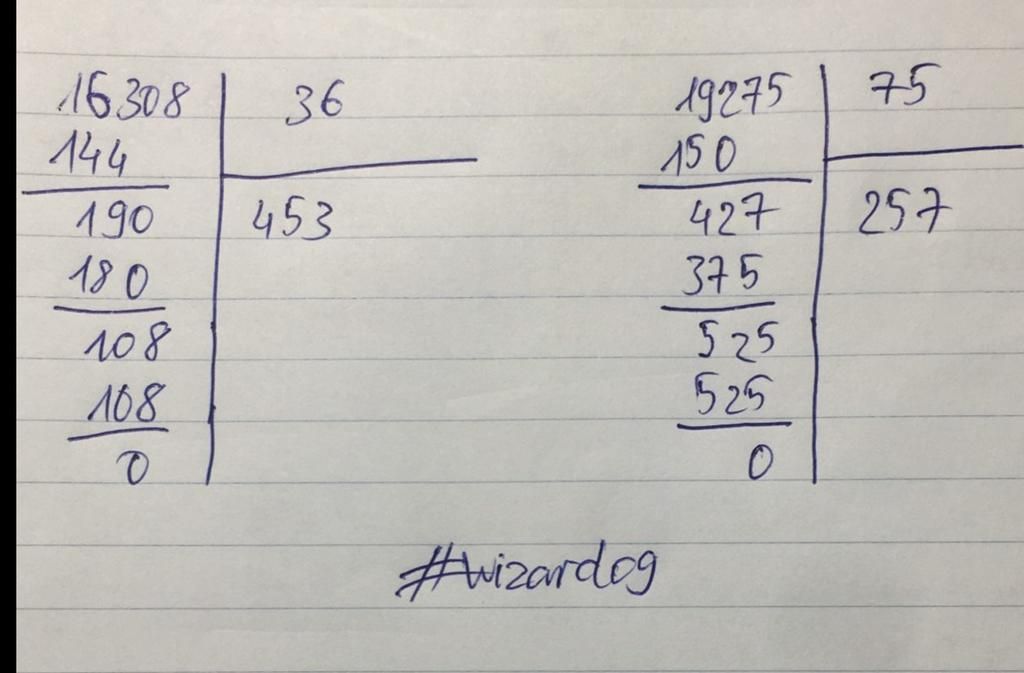 16308 36
144
190 453
180
108
108
0
19275 75
150
427 257
375
525
525
0
#wizardog